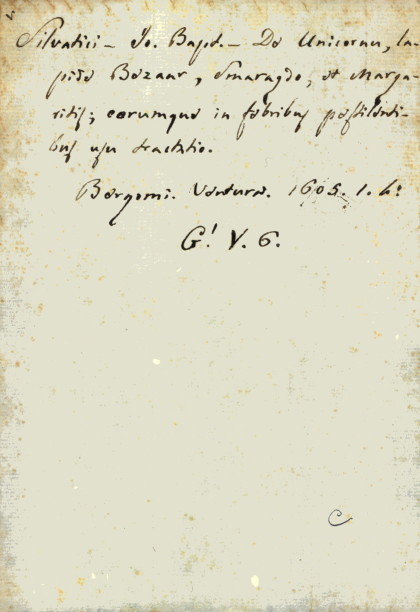 Silvatici - Jo. Bapt. - De Unicornu, la-
pide Bezaar, Smaragdo, et Marga-
ritis; eorumque in febribus pestilenti-
bus usu tractatio.
Bergomi. Ventura. 1605. 1. 4:
G! V. 6.
C